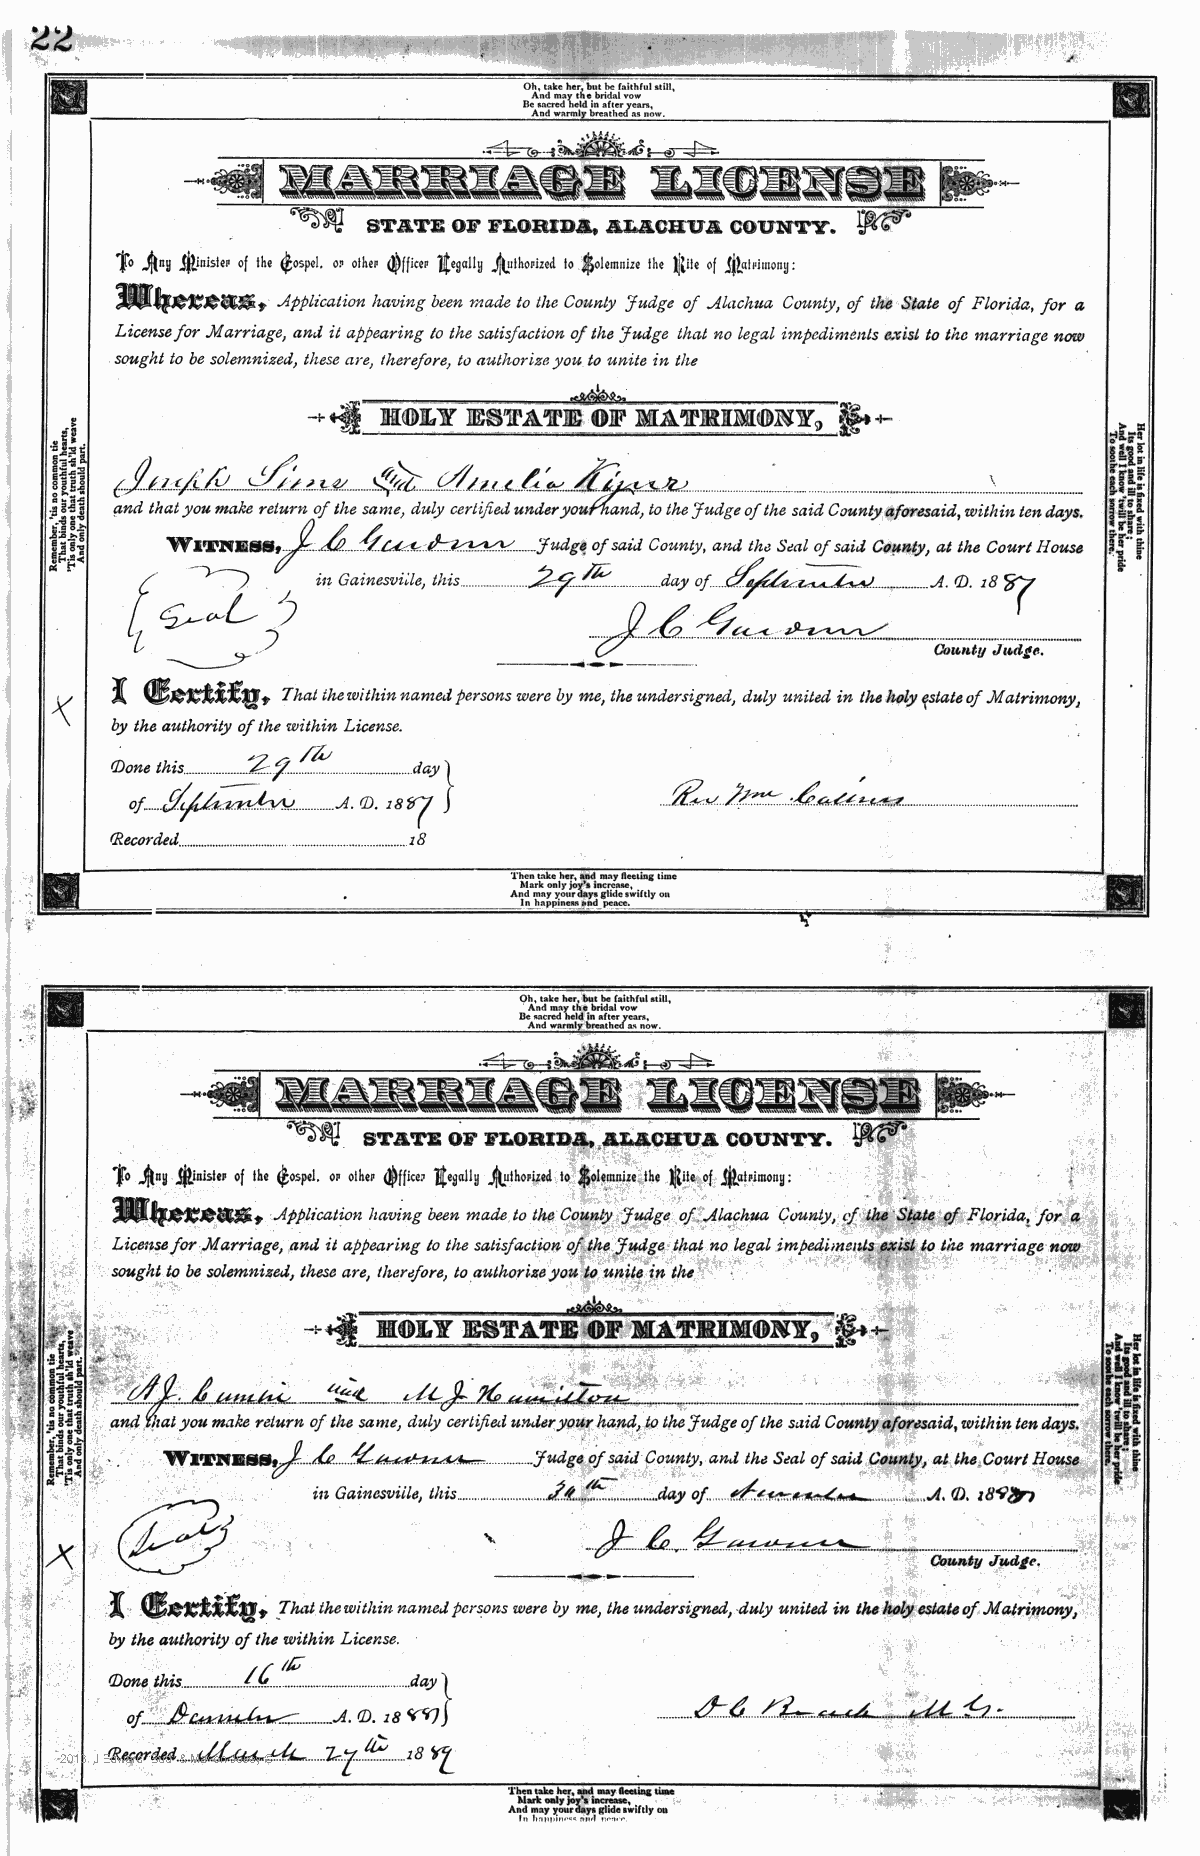 22
Oh, take her, but be faithful still,
And may the bridal vow
Be sacred held in after years,
And warmly breathed as now.
MARRIAGE LICENSE
STATE OF FLORIDA, ALACHUA COUNTY.
To Any Minister of the Gospel, or other Officer Legally Authorized to Solemnize the Rite of Matrimony:
Whereas, Application having been made to the County Judge of Alachua County, of the State of Florida, for a
License for Marriage, and it appearing to the satisfaction of the Judge that no legal impediments exist to the marriage now
sought to be solemnized, these are, therefore, to authorize you to unite in the
HOLY ESTATE OF MATRIMONY,
Remember, 'tis no common tie
That binds our youthful hearts,
'Tis only one that truth sh'ld weave
And only death should part.
Her lot in life is fixed with thine
Its good and ill to share;
And well I know 'twill be her pride
To soothe each sorrow there.
Joseph Sims and Amelia
and that you make return of the same, duly certified under your hand, to the Judge of the said County aforesaid, within ten days.
WITNESS, J C Judge of said County, and the Seal of said County, at the Court House
in Gainesville, this 29th day of September A. D. 1887
Seal
J C
County Judge.
X
I Certify, That the within named persons were by me, the undersigned, duly united in the holy estate of Matrimony,
by the authority of the within License.
Done this 29th day
of September A. D. 1887
Rev Wm
Recorded 18
Then take her, and may fleeting time
Mark only joy's increase,
And may your days glide swiftly on
In happiness and peace.
Oh, take her, but be faithful still,
And may the bridal vow
Be sacred held in after years,
And warmly breathed as now.
MARRIAGE LICENSE
STATE OF FLORIDA, ALACHUA COUNTY.
To Any Minister of the Gospel, or other Officer Legally Authorized to Solemnize the Rite of Matrimony:
Whereas, Application having been made to the County Judge of Alachua County, of the State of Florida, for a
License for Marriage, and it appearing to the satisfaction of the Judge that no legal impediments exist to the marriage now
sought to be solemnized, these are, therefore, to authorize you to unite in the
HOLY ESTATE OF MATRIMONY,
Remember, 'tis no common tie
That binds our youthful hearts,
'Tis only one that truth sh'ld weave
And only death should part.
Her lot in life is fixed with thine
Its good and ill to share;
And well I know 'twill be her pride
To soothe each sorrow there.
A J. and M J Hamilton
and that you make return of the same, duly certified under your hand, to the Judge of the said County aforesaid, within ten days.
WITNESS, J C Judge of said County, and the Seal of said County, at the Court House
in Gainesville, this 30th day of November A. D. 188
Seal
J C.
County Judge.
X
I Certify, That the within named persons were by me, the undersigned, duly united in the holy estate of Matrimony,
by the authority of the within License.
Done this 16th day
of December A. D. 188
D C M G.
Recorded March 27th 1889
Then take her, and may fleeting time
Mark only joy's increase,
And may your days glide swiftly on
In happiness and peace.